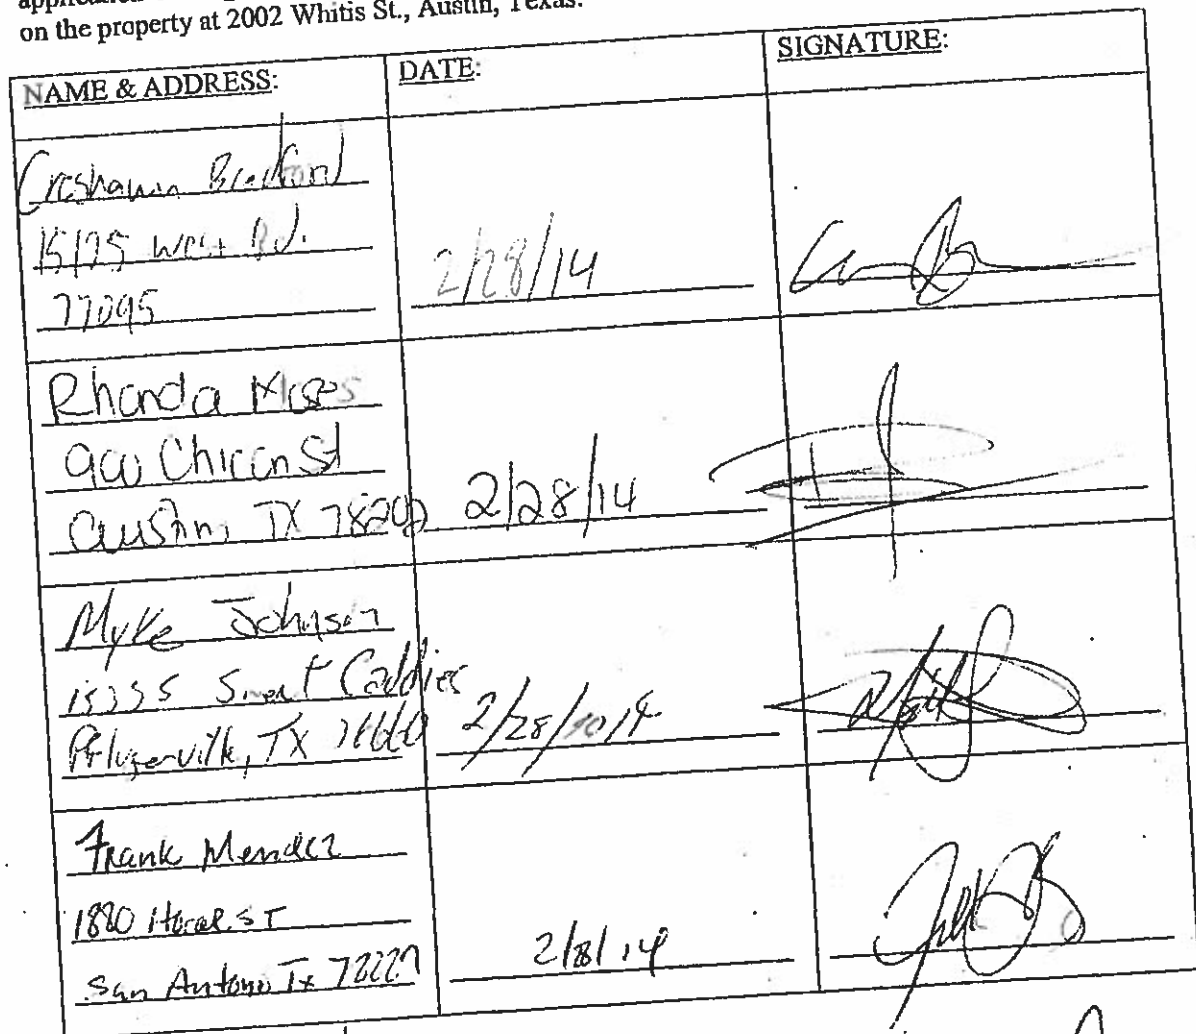 on the property at 2002 Whitis St., Austin, Texas.
NAME & ADDRESS:
DATE:
SIGNATURE:
Creshawn Bradford
15175 West Rd.
77095
2/28/14
Rhonda Moses
900 Chicon St
Austin, TX 78202
2/28/14
Myke Johnson
Caddies
Pflugerville, TX 78660
2/28/2014
Frank Mendez
1880 ST
San Antonio Tx